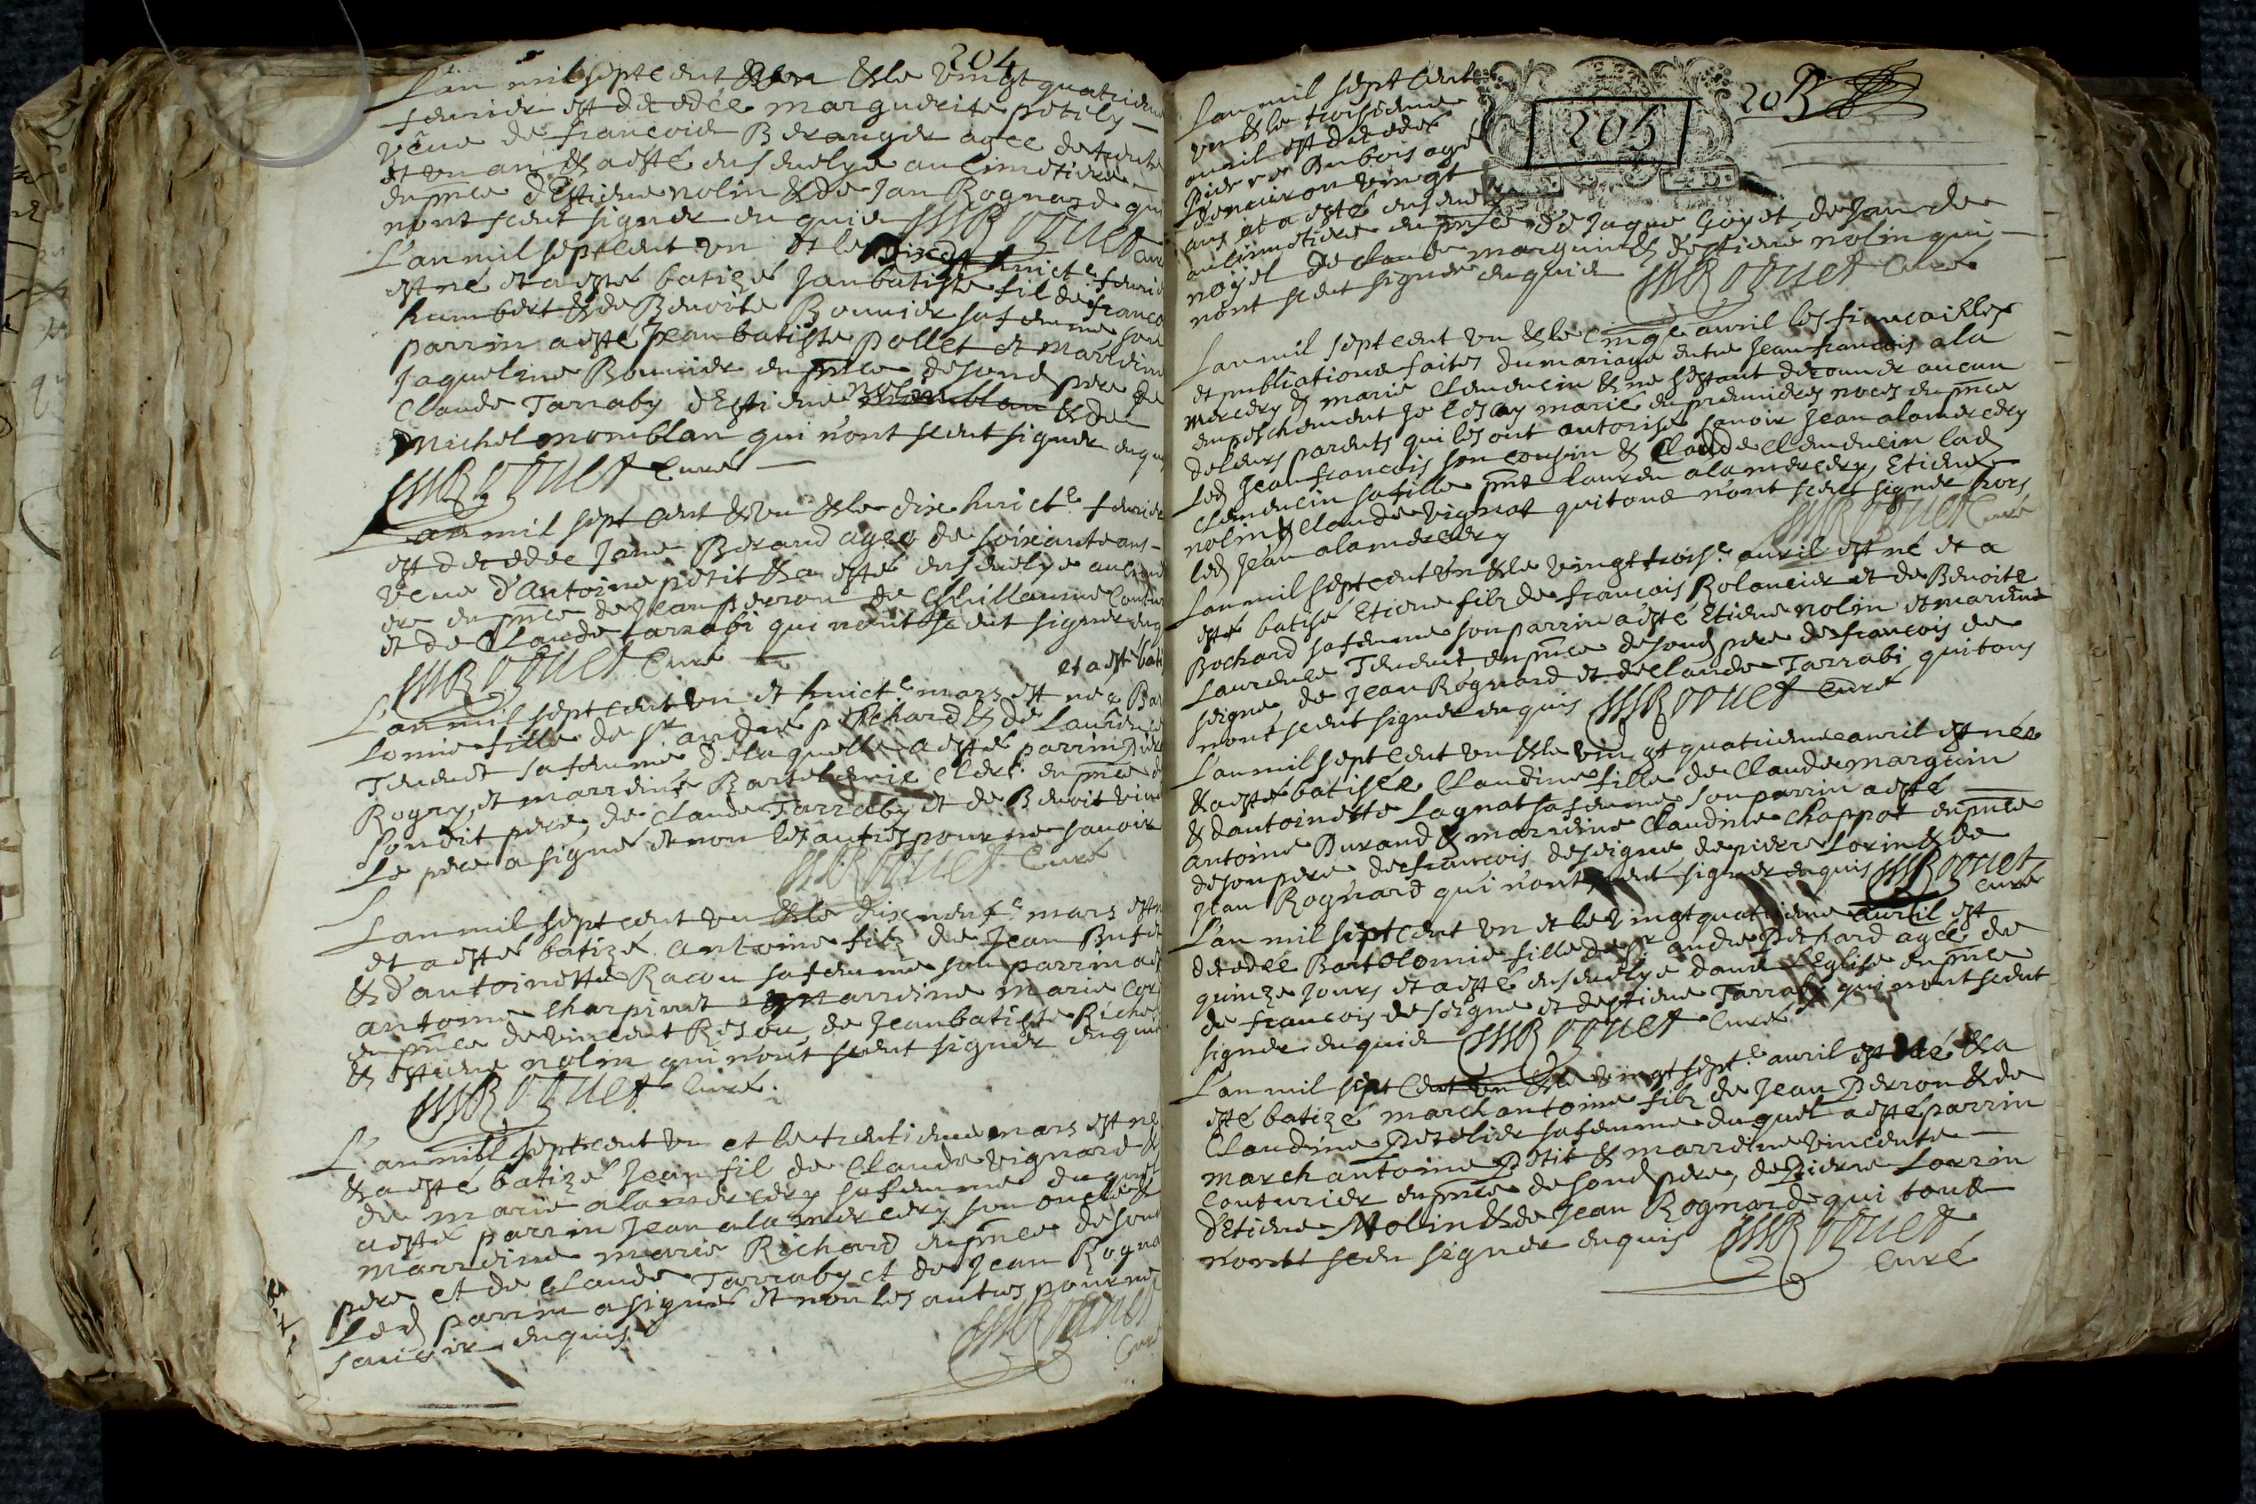 204
L'an mil sept cent & un & le vingt quatrieme
fevrier est decedée marguerite petily
veuve de francois Beranger agee de trente
et un an & a esté ensevelye au cimetiere
en pnce d'Estiene nolin & de Jan Rognard qui
n'ont sceu signer enquis
L'an mil sept cent un et le dixet huict.e fevrie
est né et a esté batizé Jan batiste fil de franco
humbert & de Benoite Bonnier sa femme son
parrin a esté Jean batiste Pollet et mareine
Jaqueline Bonnier en pnce de sond pere de
Claude Tarraby d'Estiene nolin & de
Michel momblan qui n'ont sceut signer enqu
Curé
L'an mil sept cent & un & le dix huict.e fevrier
est decedee Jane Berard agee de soixante ans
veuve d'Antoine petit & a esté ensevelye au cime
ere en pnce de Jean perron de Guillaume Coutur
et de Claude tarrabi qui n'ont sceut signer enq
Curé
et a esté bati
L'an mil sept cent un et huict.e mars est nee Bar
lomie fille de sr andré pichard & de Laurence
Tenent sa femme de laquelle a esté parrin pier
Rogry, et marreine Bartelemie Clerc en pnce de
son dit pere, de Claude Tarraby et de Benoit vin
Le pere a signé et non les autres pour ne savoir
Curé
L'an mil sept cent un & le dix neuf.e mars est n
et a esté batizé antoine filz de Jean Bufet
& d'antoinette Racou sa femme son parrin a es
antoine charpinet & marreine marie Cor
en pnce de vincent Resou, de Jean batiste Riche
& estiene nolin qui n'ont sceut signer enqui
Curé.
L'an mil sept cent un et le trentieme mars est né
& a esté batizé Jean fil de Claude vignard &
de marie alamercery sa femme duquel
a esté parrin Jean alamercery son oncle &
marreine marie Richard en pnce de sond
pere et de Claude Tarraby et de Jean Rogna
Led parrin a signé et non les autres pour ne
savoir enquis
Curé
205
205
L'an mil sept cent
un & le troisieme
avril est decedé
Pierre Dubois agé
d'environ vingt
ans et a esté ensevely
au cimetiere en pnce de Jaque Goyet, de Jan de
noyel de claude marguin & d'estiene nolin qui
n'ont sceut signer enquis
Curé
L'an mil sept cent un & le cinq.e avril les fiancailles
et publications faites du mariage entre Jean francois ala
mercery & marie Clemencin & ne s'estant decouver aucun
empeschement je les ay marié en premieres noces en pnce
de leurs parents qui les ont autorisé savoir Jean alamercery
led Jean francois son cousin & Claude Clemencin lad
Clemencin sa fille pnt lauren alamercery, Etiene
nolin & Claude vignat qui tous n'ont sceut signer hors
led Jean alamercery
Curé
L'an mil sept cent un & le vingt trois.e avril est né et a
esté batisé Etiene filz de francois Rolancier et de Benoite
Bochard sa femme son parrin a esté Etiene nolin et mareine
Laurence Tenent en pnce de sond pere de francois de
seigne, de Jean Rognard et de Claude Tarrabi, qui tous
n'ont sceut signer enquis
Curé
L'an mil sept cent un & le vingt quatrieme avril est née
& a esté batisée Claudine fille de Claude marguin
& d'antoinette Lagnat sa femme son parrin a esté
antoine Durand & marreine Claudine Chappot en pnce
de son pere de francois deseigne de pierre Lorin & de
Jean Rognard qui n'ont sceut signer enquis
Curé
L'an mil sept cent un et le vingt quatrieme avril est
decedée Bartelomie fille de sr andré pichard agée de
quinze jours et a esté ensevelye dans l'eglise en pnce
de francois de seigne et d'estiene Tarraby qui n'ont sceut
signer enquis
Curé
L'an mil sept cent un & le vingt sept.e avril est né & a
esté batizé march antoine filz de Jean Perron & de
Claudine Petelier sa femme duquel a esté parrin
march antoine Petit & marreine vincente
Couturier en pnce de sond pere, de Pierre Lorrin
d'Etiene Nolin & de Jean Rognard qui tous
n'ont sceu signer enquis
Curé